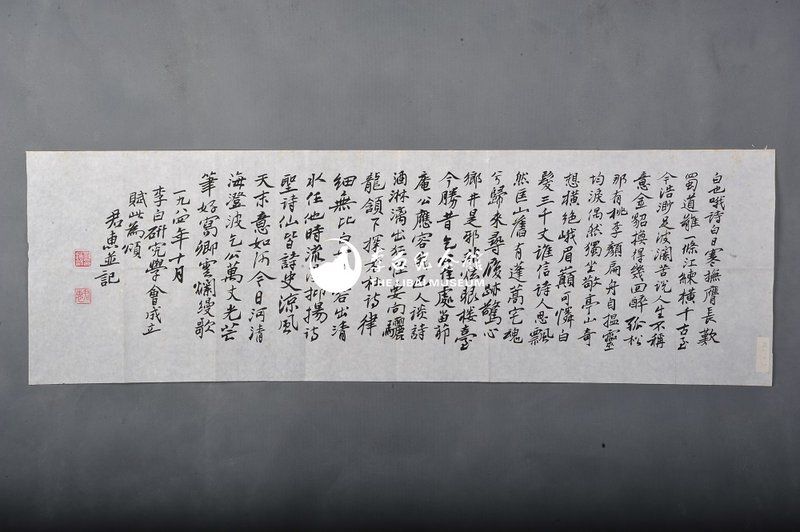 白也哦詩白日寒撫膺長歎
蜀道難一條江練橫千古至
今浩渺足波瀾昔說人生不稱
意金貂換得幾回醉孤松
那有桃李顏扁舟自搵靈
均淚偶然獨坐敬亭山奇
想橫絕峨眉巔可憐白
髮三千丈誰信詩人思飄
然匡山舊有宅魂
兮歸來尋廢跡驚心
鄉井是耶非炫眼樓臺
今勝昔乞佳處留節
庵公應容人談詩
酒淋漓出安向驪
龍頷下探詩律
細無比白若出清
水任他時流抑揚詩
聖詩仙皆詩史涼風
天末意如何今日河清
海澄波乞公萬丈光芒
筆好寫卿雲爛縵歌
一九八四年十月
李白研究學會成立
賦此為頌
君惠並記
THE LIBAI MUSEUM